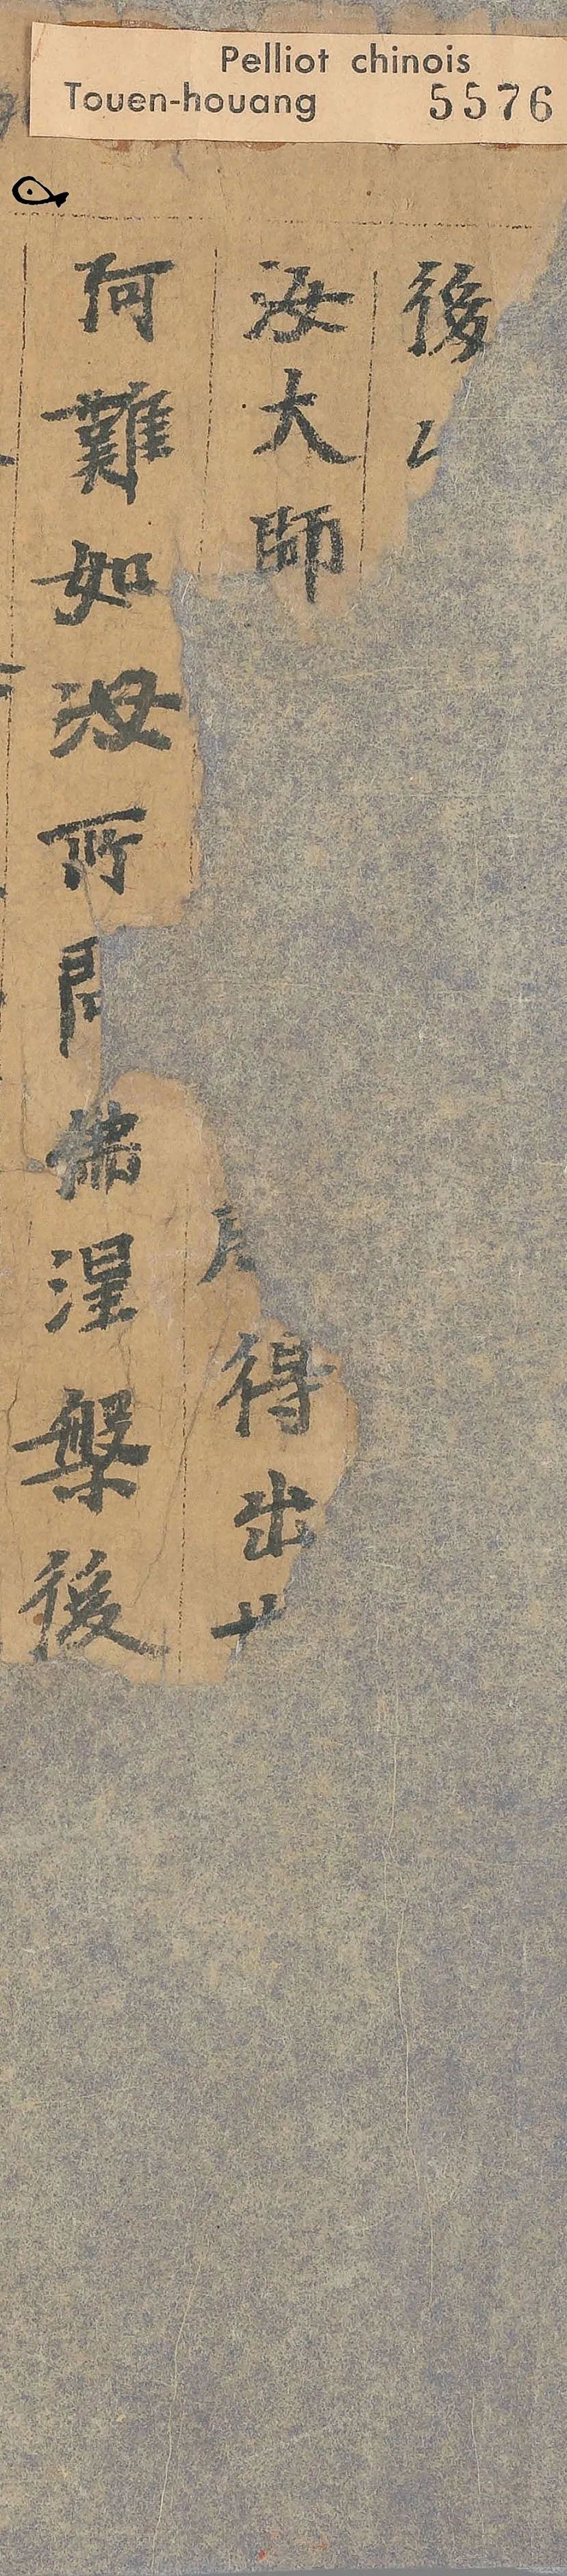 Pelliot chinois
Touen-houang 5576
後以
汝大師
得出
阿難如汝所問佛涅槃後